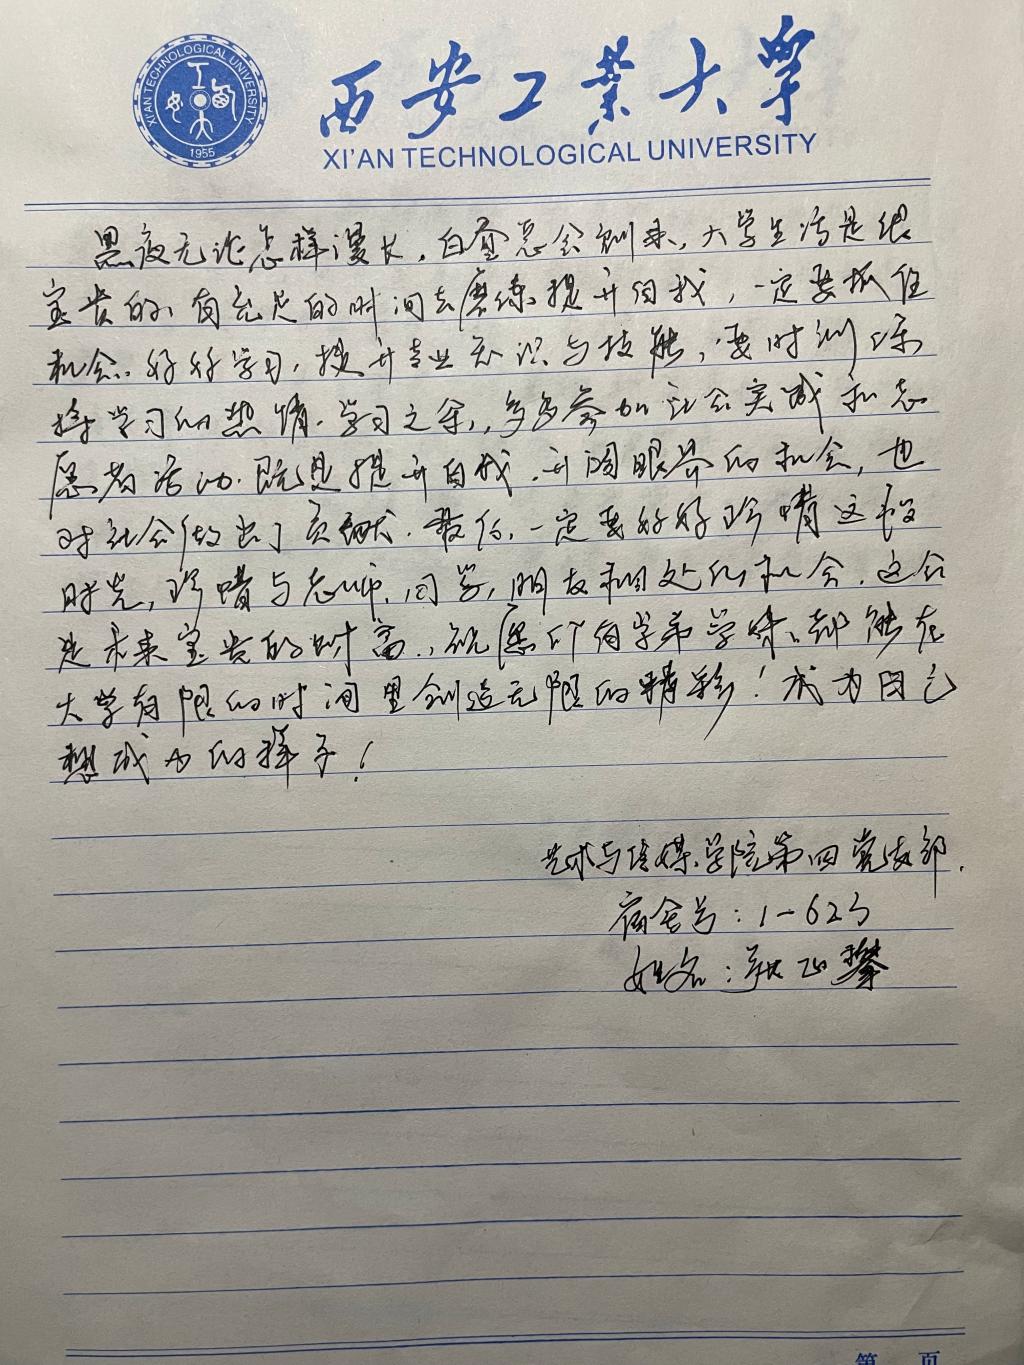 XI'AN TECHNOLOGICAL UNIVERSITY
1955
西安工业大学
XI'AN TECHNOLOGICAL UNIVERSITY
黑夜无论怎样漫长，白昼总会到来，大学生活是很
宝贵的、有充足的时间去磨练提升自我，一定要抓住
机会、好好学习，提升专业知识与技能，要时刻保
持学习的热情。学习之余，多多参加社会实践和志
愿者活动。既是提升自我、开阔眼界的机会，也
对社会做出了贡献。最后，一定要好好珍惜这段
时光，珍惜与老师、同学，朋友相处的机会，这会
是未来宝贵的财富，祝愿各位学弟学妹、都能在
大学有限的时间里创造无限的精彩！成为自己
想成为的样子！
艺术与传媒学院第四党支部.
宿舍号：1-623
姓名：张正攀
第 页